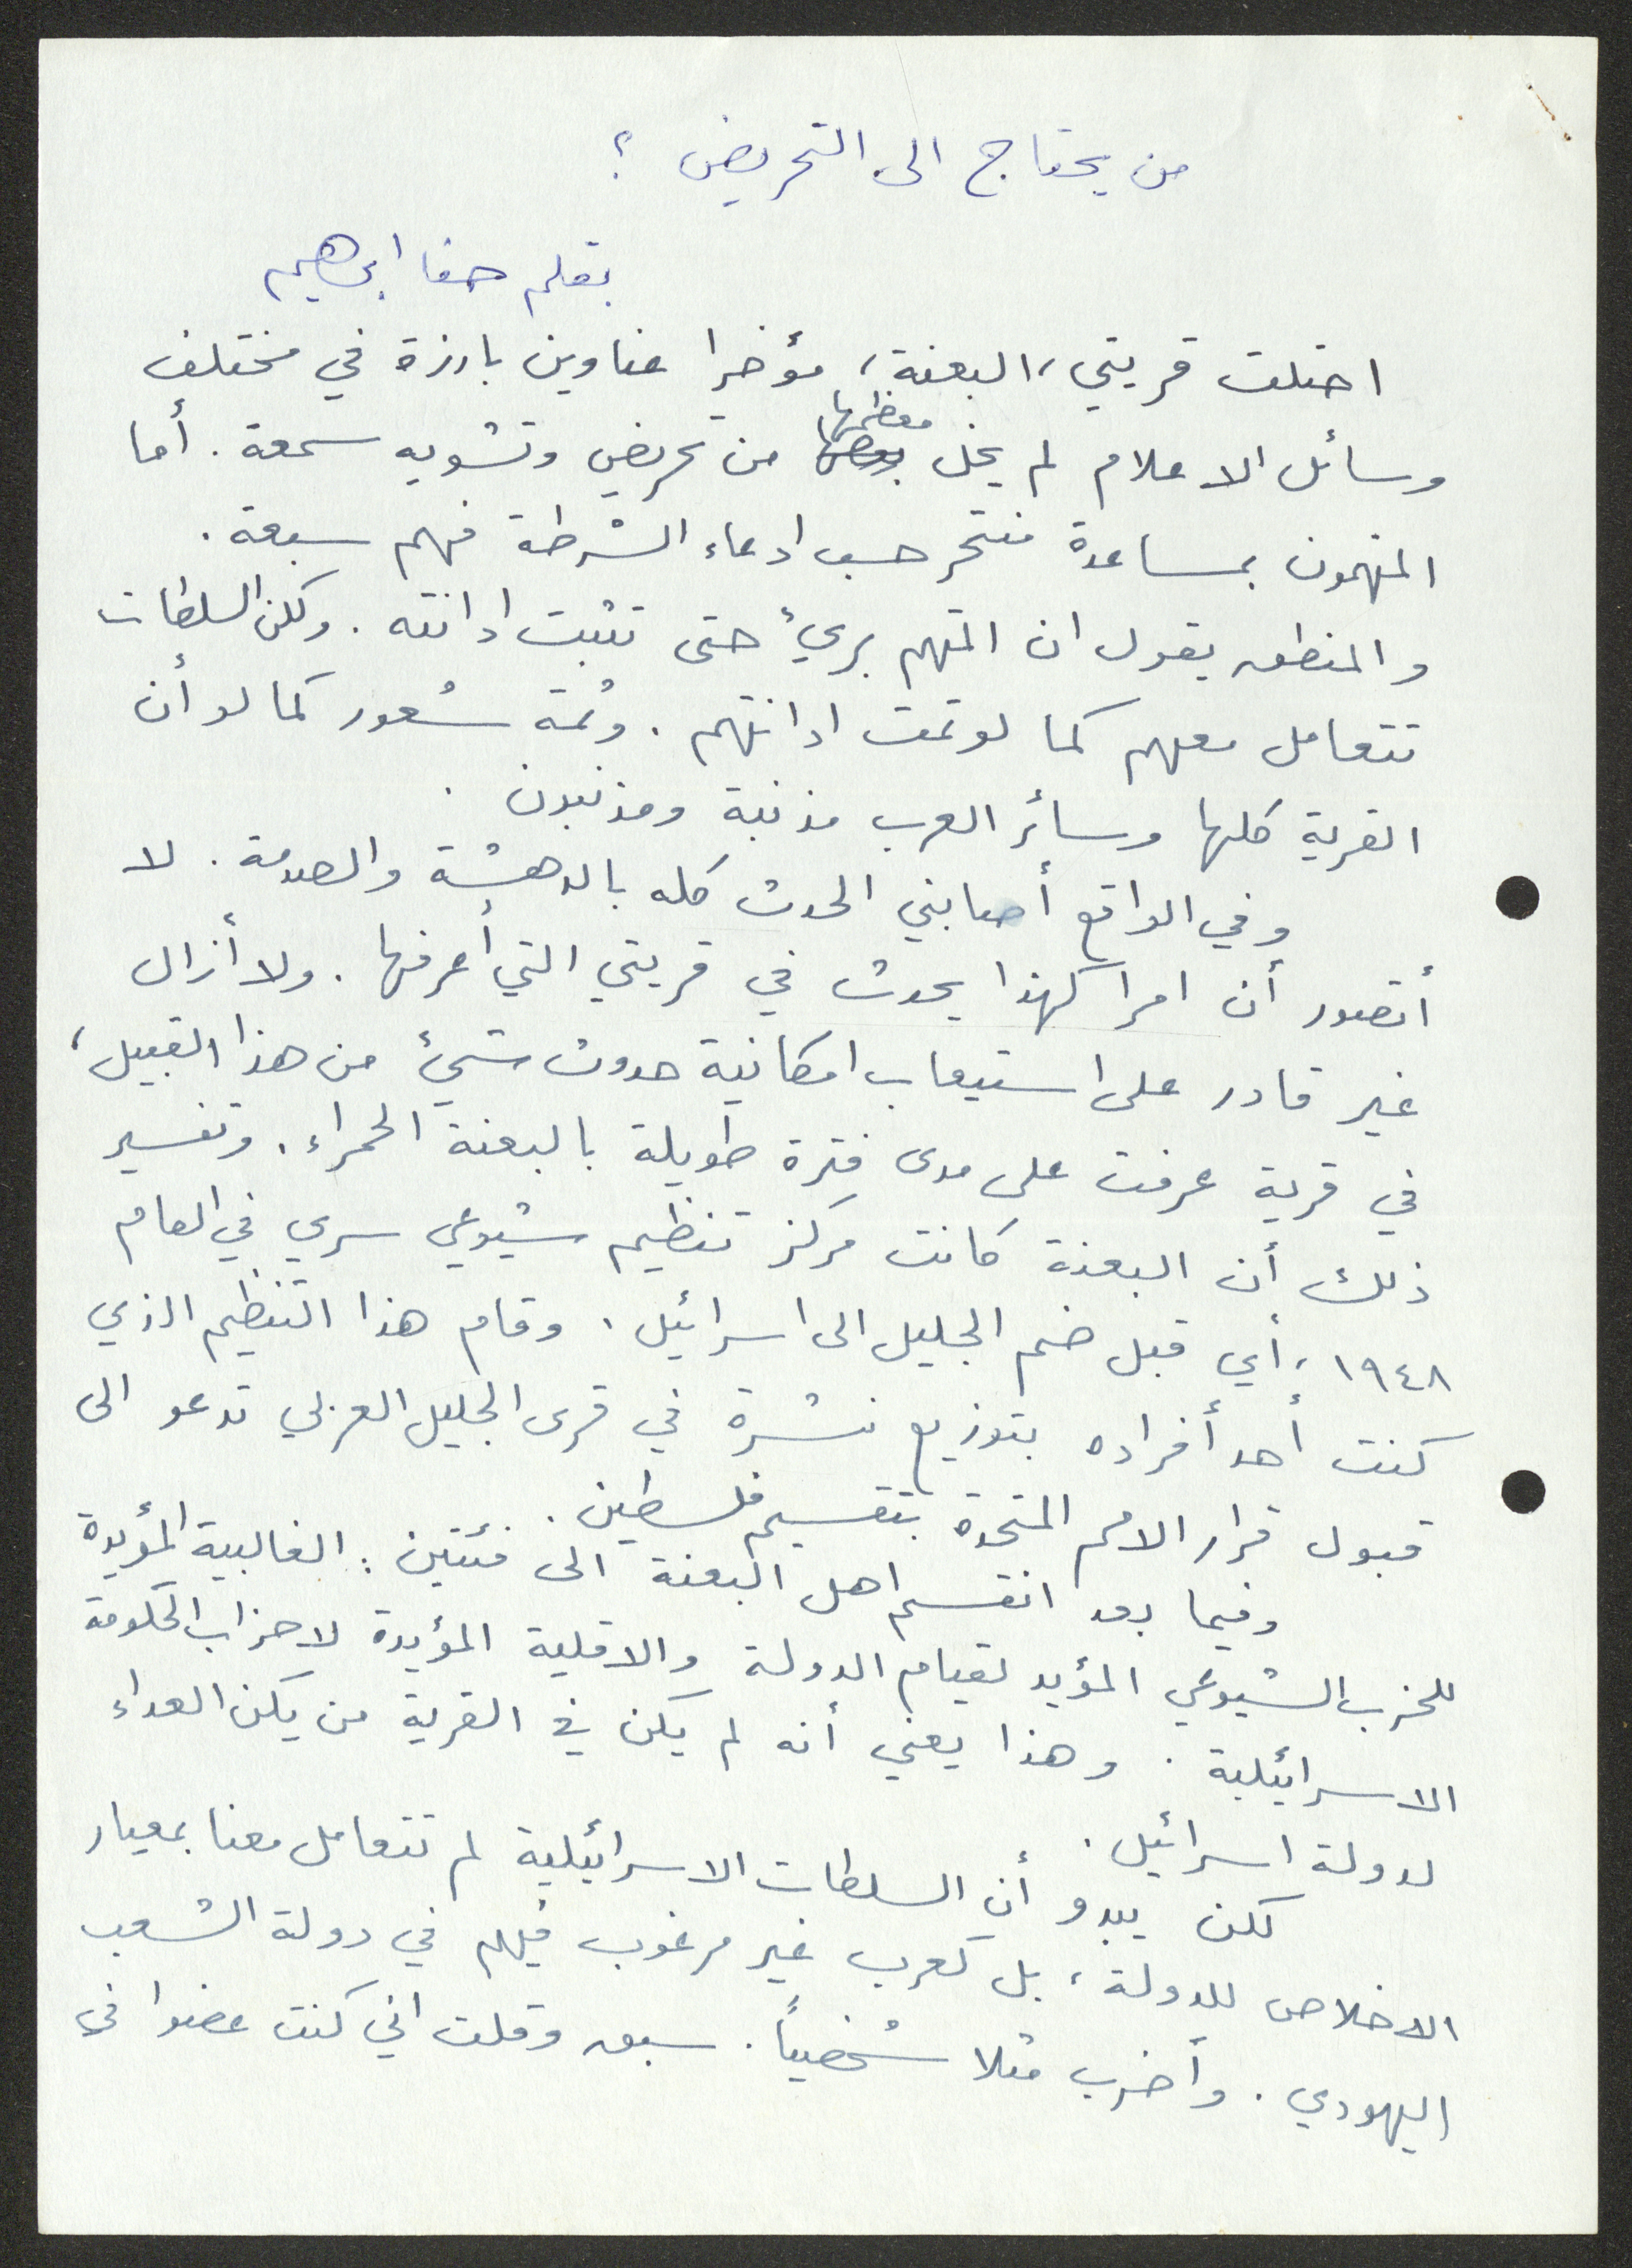 من يحتاج الى التحريض ؟
بقلم حنا ابراهيم
احتلت قريتي، البعنة، مؤخرا عناوين بارزة في مختلف
وسائل الاعلام لم يخل معظمها من تحريض وتشويه سمعة. أما
المتهمون بمساعدة منتحر حسب ادعاء الشرطة فهم سبعة.
والمنطق يقول ان المتهم بريء حتى تثبت ادانته. ولكن السلطات
تتعامل معهم كما لو تمت ادانتهم. وثمة شعور كما لو أن
القرية كلها وسائر العرب مذنبة ومذنبون.
وفي الواقع أصابني الحدث كله بالدهشة والصدمة. لا
أتصور أن امرا كهذا يحدث في قريتي التي أعرفها. ولا أزال
غير قادر على استيعاب امكانية حدوث شيء من هذا القبيل،
في قرية عرفت على مدى فترة طويلة بالبعنة الحمراء. وتفسير
ذلك أن البعنة كانت مركز تنظيم شيوعي سري في العام
١٩٤٨، أي قبل ضم الجليل الى اسرائيل. وقام هذا التنظيم الذي
كنت أحد أفراده بتوزيع نشرة في قرى الجليل الغربي تدعو الى
قبول قرار الامم المتحدة بتقسيم فلسطين.
وفيما بعد انقسم اهل البعنة الى فئتين: الغالبية المؤيدة
للحزب الشيوعي المؤيد لقيام الدولة والاقلية المؤيدة لاحزاب الحكومة
الاسرائيلية. وهذا يعني أنه لم يكن في القرية من يكن العداء
لدولة اسرائيل.
لكن يبدو أن السلطات الاسرائيلية لم تتعامل معنا بمعيار
الاخلاص للدولة، بل كعرب غير مرغوب فيهم في دولة الشعب
اليهودي. وأضرب مثلا شخصياً. سبق وقلت اني كنت عضوا في